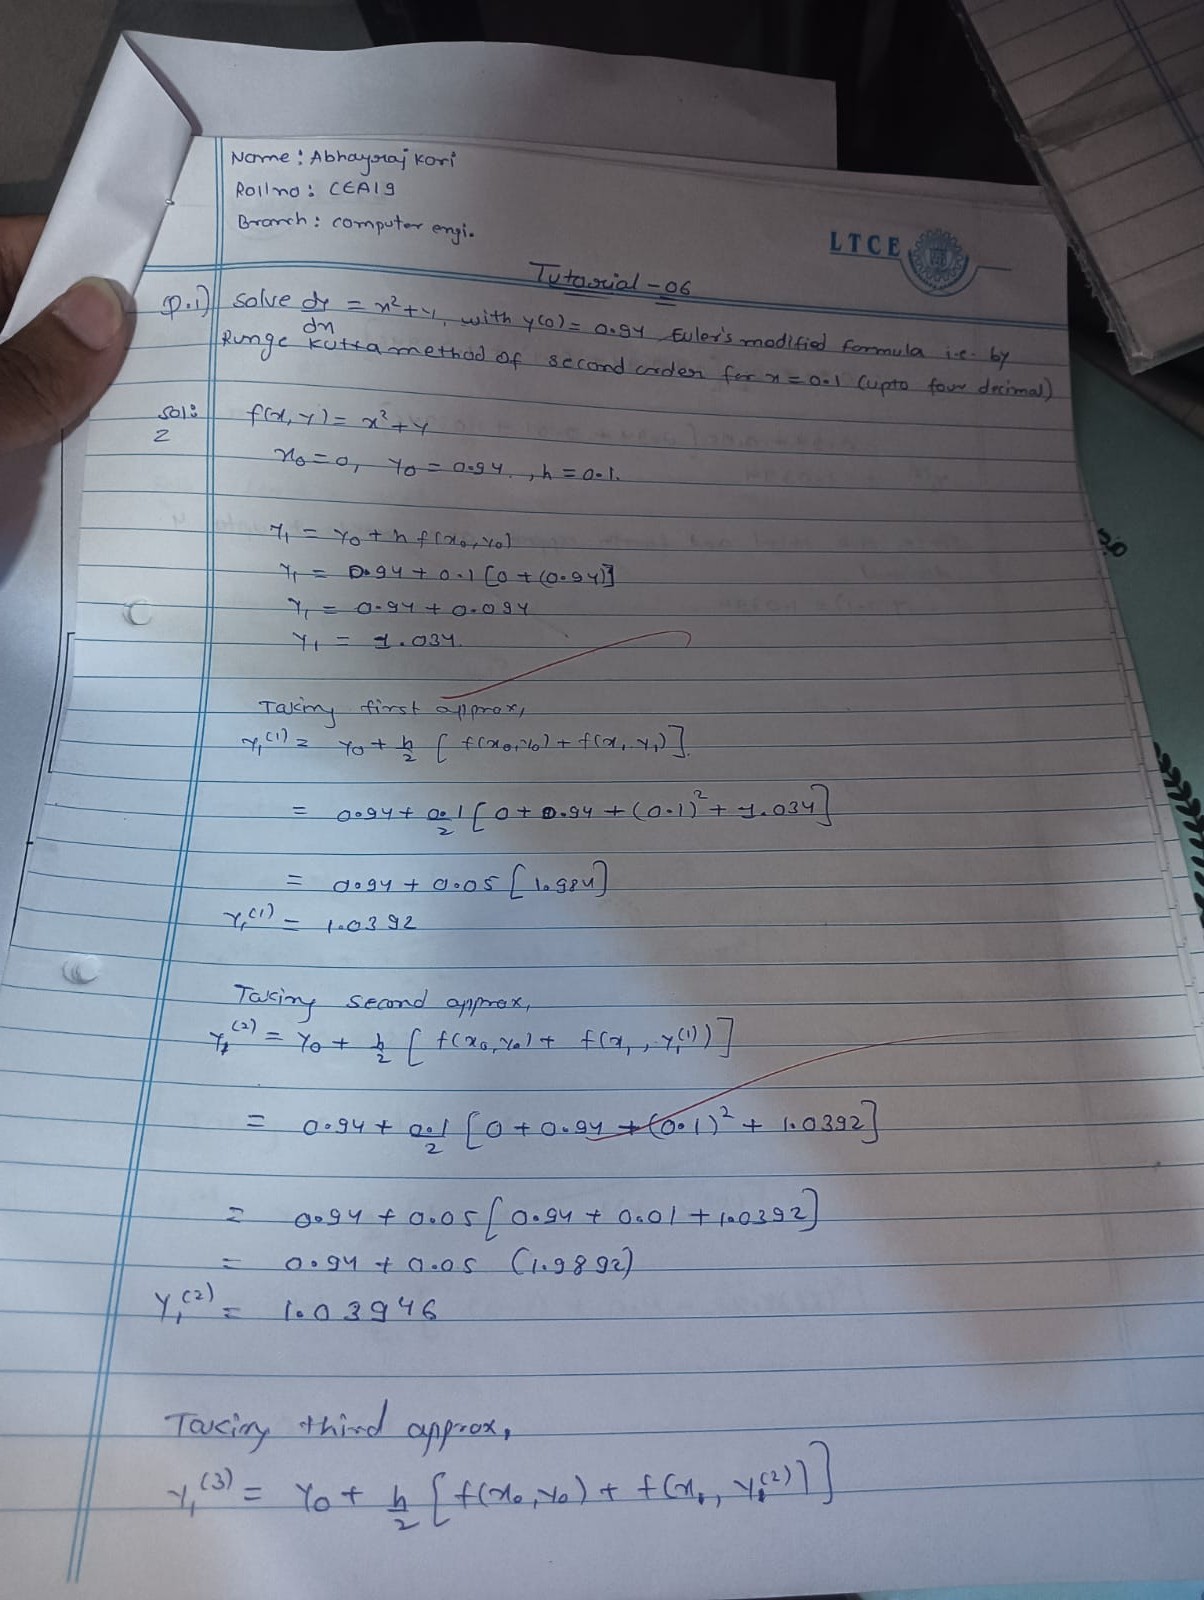 Name : Abhayraj Kori
Roll no : CEA19
Branch : computer engi.
LTCE
Tutorial - 06
Q.1) Solve dy/dx = x² + y, with y(0) = 0.94 Euler's modified formula i.e. by
Runge Kutta method of second order for x = 0.1 (upto four decimal)
Sol:
f(x, y) = x² + y
x₀ = 0, y₀ = 0.94, h = 0.1.
y₁ = y₀ + h f(x₀, y₀)
y₁ = 0.94 + 0.1 [0 + (0.94)]
y₁ = 0.94 + 0.094
y₁ = 1.034.
Taking first approx,
y₁⁽¹⁾ = y₀ + h/2 [ f(x₀, y₀) + f(x₁, y₁) ]
= 0.94 + 0.1/2 [ 0 + 0.94 + (0.1)² + 1.034 ]
= 0.94 + 0.05 [ 1.984 ]
y₁⁽¹⁾ = 1.0392
Taking second approx,
y₁⁽²⁾ = y₀ + h/2 [ f(x₀, y₀) + f(x₁, y₁⁽¹⁾) ]
= 0.94 + 0.1/2 [ 0 + 0.94 + (0.1)² + 1.0392 ]
= 0.94 + 0.05 [ 0.94 + 0.01 + 1.0392 ]
= 0.94 + 0.05 (1.9892)
y₁⁽²⁾ = 1.03946
Taking third approx,
y₁⁽³⁾ = y₀ + h/2 [ f(x₀, y₀) + f(x₁, y₁⁽²⁾) ]